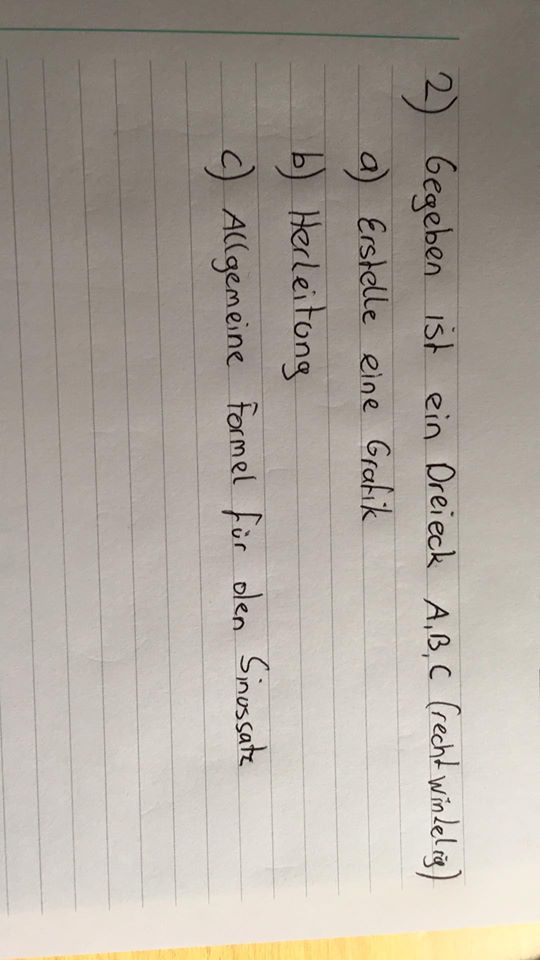 2) Gegeben ist ein Dreieck A, B, C (rechtwinkelig)
a) Erstelle eine Grafik
b) Herleitung
c) Allgemeine Formel für den Sinussatz